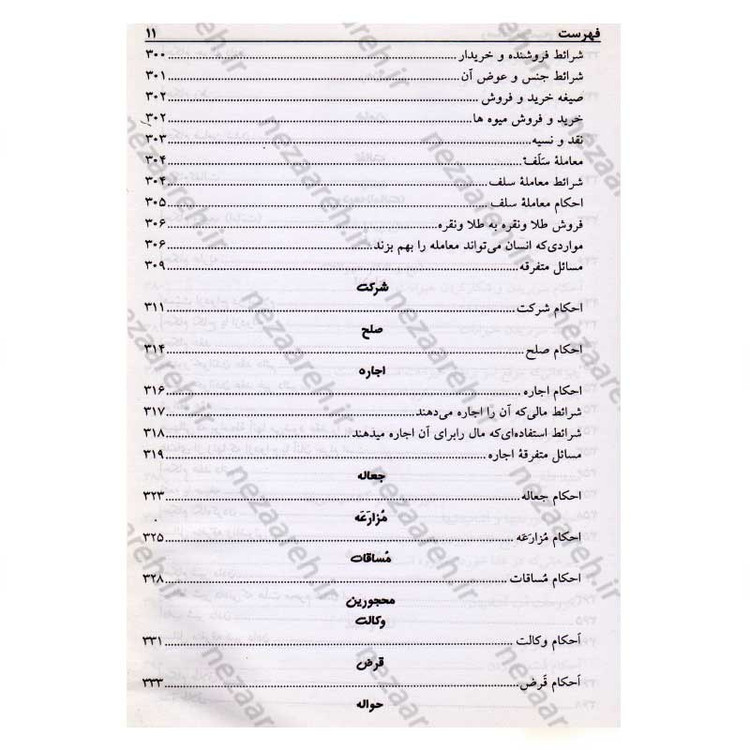 فهرست ۱۱
شرائط فروشنده و خریدار ۳۰۰
شرائط جنس و عوض آن ۳۰۱
صیغه خرید و فروش ۳۰۲
خرید و فروش میوه ها ۳۰۲
نقد و نسیه ۳۰۳
معاملهٔ سَلَف ۳۰۴
شرائط معاملهٔ سلف ۳۰۴
احکام معاملهٔ سلف ۳۰۵
فروش طلا ونقره به طلا ونقره ۳۰۶
مواردی‌که انسان می‌تواند معامله را بهم بزند ۳۰۶
مسائل متفرقه ۳۰۹
شرکت
احکام شرکت ۳۱۱
صلح
احکام صلح ۳۱۴
اجاره
احکام اجاره ۳۱۶
شرائط مالی‌که آن را اجاره می‌دهند ۳۱۷
شرائط استفاده‌ای‌که مال رابرای آن اجاره میدهند ۳۱۸
مسائل متفرقهٔ اجاره ۳۱۹
جعاله
احکام جعاله ۳۲۳
مُزارَعَه
احکام مُزارَعَه ۳۲۵
مُساقات
احکام مُساقات ۳۲۸
محجورین
وکالت
اَحکام وکالت ۳۳۱
قرض
اَحکام قَرض ۳۳۳
حواله
nezaareh.ir